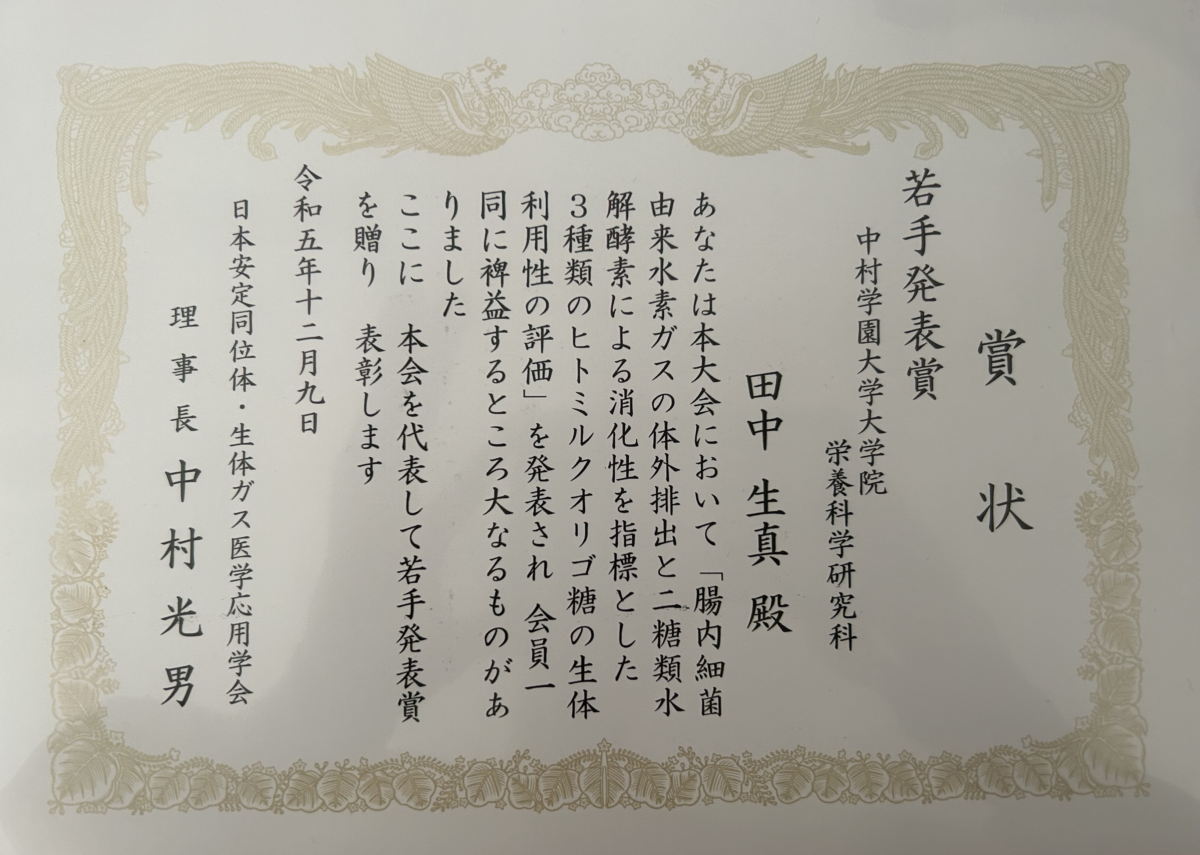 賞状
若手発表賞
中村学園大学大学院
栄養科学研究科
田中 生真 殿
あなたは本大会において「腸内細菌
由来水素ガスの体外排出と二糖類水
解酵素による消化性を指標とした
3種類のヒトミルクオリゴ糖の生体
利用性の評価」を発表され 会員一
同に裨益するところ大なるものがあ
りました
ここに 本会を代表して若手発表賞
を贈り 表彰します
令和五年十二月九日
日本安定同位体・生体ガス医学応用学会
理事長 中村光男